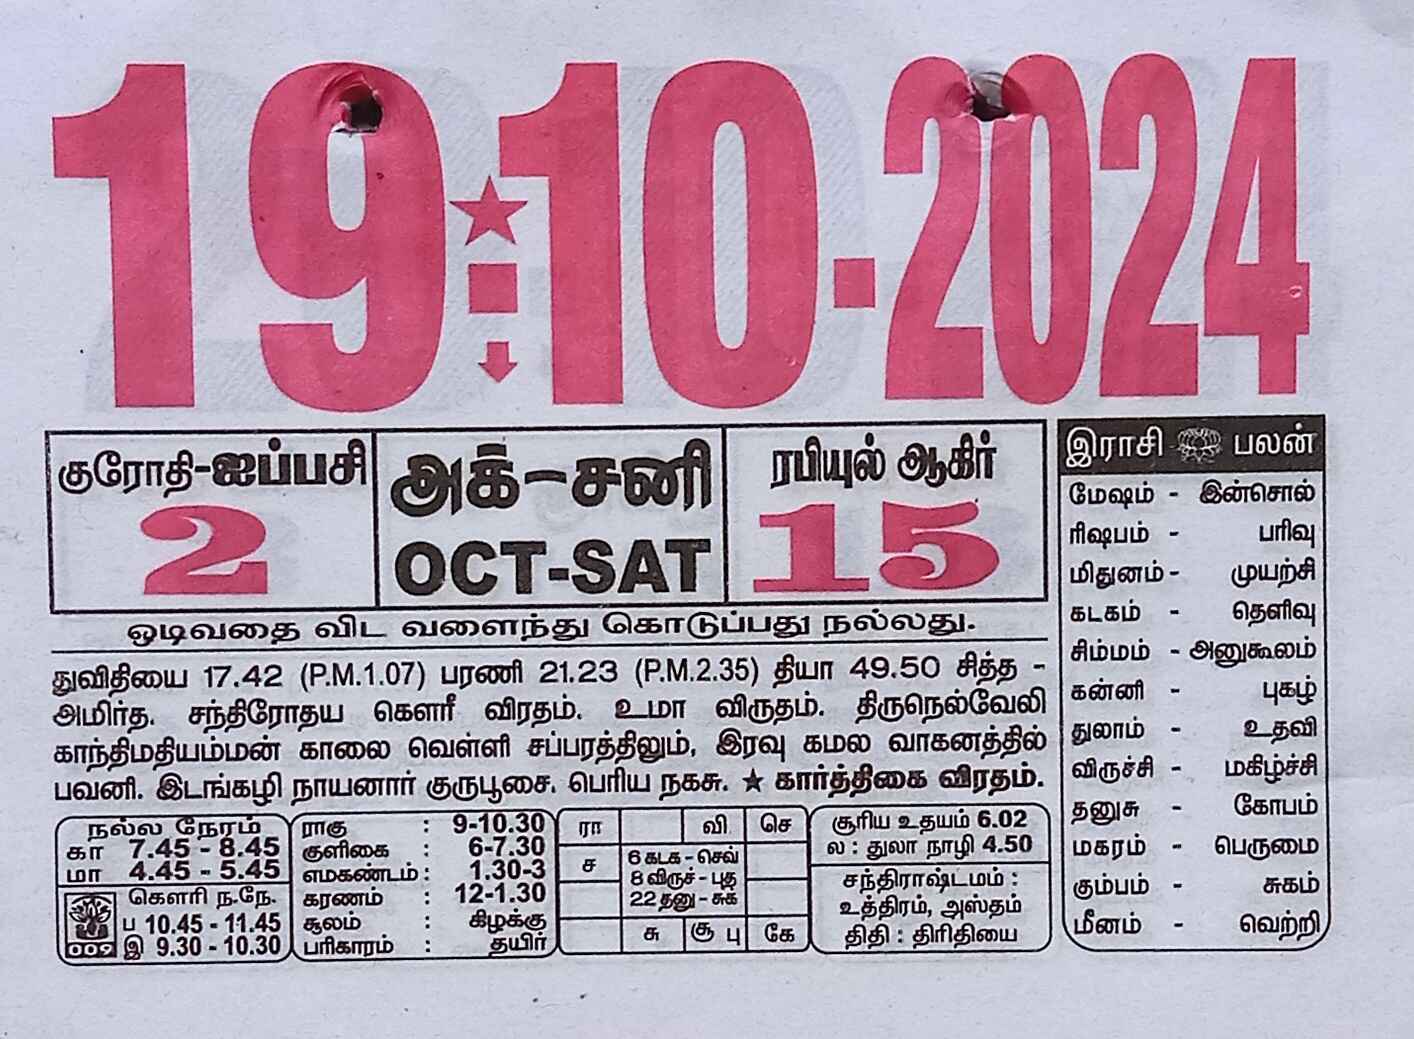 19-10-2024
குரோதி-ஐப்பசி
2
அக்-சனி
OCT-SAT
ரபியுல் ஆகிர்
15
ஒடிவதை விட வளைந்து கொடுப்பது நல்லது.
துவிதியை 17.42 (P.M.1.07) பரணி 21.23 (P.M.2.35) தியா 49.50 சித்த -
அமிர்த. சந்திரோதய கௌரீ விரதம். உமா விருதம். திருநெல்வேலி
காந்திமதியம்மன் காலை வெள்ளி சப்பரத்திலும், இரவு கமல வாகனத்தில்
பவனி. இடங்கழி நாயனார் குருபூசை. பெரிய நகசு. ★ கார்த்திகை விரதம்.
நல்ல நேரம்
கா 7.45 - 8.45
மா 4.45 - 5.45
கௌரி ந.நே.
ப 10.45 - 11.45
இ 9.30 - 10.30
009
ராகு : 9-10.30
குளிகை : 6-7.30
எமகண்டம் : 1.30-3
கரணம் : 12-1.30
சூலம் : கிழக்கு
பரிகாரம் : தயிர்
ரா வி செ
ச
6 கடக - செவ்
8 விருச் - புத
22 தனு - சுக்
சு சூ பு கே
சூரிய உதயம் 6.02
ல : துலா நாழி 4.50
சந்திராஷ்டமம் :
உத்திரம், அஸ்தம்
திதி : திரிதியை
இராசி பலன்
மேஷம் - இன்சொல்
ரிஷபம் - பரிவு
மிதுனம் - முயற்சி
கடகம் - தெளிவு
சிம்மம் - அனுகூலம்
கன்னி - புகழ்
துலாம் - உதவி
விருச்சி - மகிழ்ச்சி
தனுசு - கோபம்
மகரம் - பெருமை
கும்பம் - சுகம்
மீனம் - வெற்றி